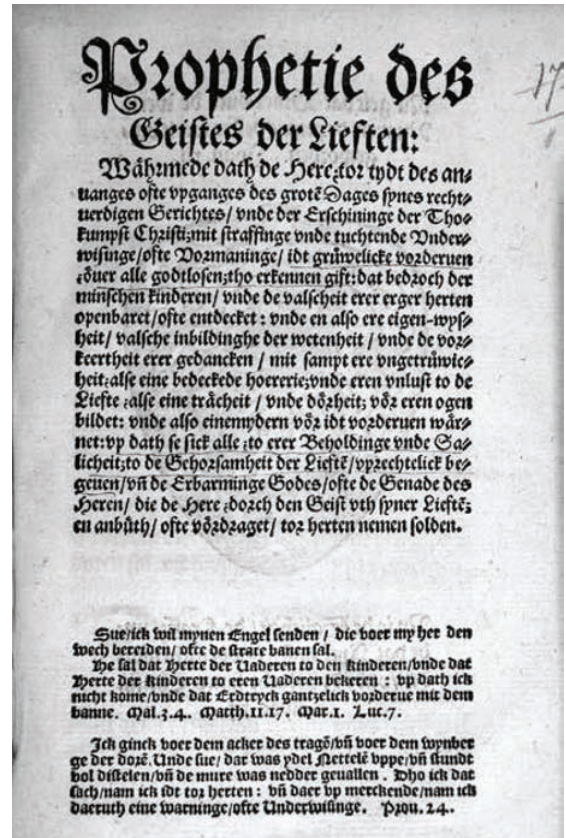 Prophetie des
Geistes der Lieften:
Währmede dath de Here/tor tydt des an⸗
uanges ofte vpganges des grotē Dages synes recht⸗
uerdigen Gerichtes/ vnde der Erschininge der Tho⸗
kumpst Christi;mit straffinge vnde tuchtende Vnder⸗
wisinge/ofte Vormaninge/ idt grüwelicke vorderuen
;öuer alle godtlosen;tho erkennen gift:dat bedroch der
minschen kinderen/ vnde de valscheit erer erger herten
openbaret/ofte entdecket: vnde en also ere eigen-wys⸗
heit/ valsche inbildinghe der wetenheit / vnde de vor⸗
keertheit erer gedancken / mit sampt ere vngetrüwic⸗
heit;alse eine bedeckede hoererie;vnde eren vnlust to de
Liefte ;alse eine trächeit / vnde dörheit; vör eren ogen
bildet: vnde also einemydern vör idt vorderuen wär⸗
net:vp dath se sick alle ;to erer Beholdinge vnde Sa⸗
licheit;to de Gehorsamheit der Lieftē/vprechtelick be⸗
geuen/vn̄ de Erbarminge Godes/ofte de Genade des
Heren/ die de Here ;dorch den Geist vth syner Lieftē;
en anbüth/ ofte vördraget/ tor herten nemen solden.
Sue/ick wil mynen Engel senden / die voer my her den
wech bereiden/ ofte de strate banen sal.
He sal dat Herte der Vaderen to den Kinderen/vnde dat
Herte der Kinderen to eren Vaderen bekeren : vp dath ick
nicht kome/vnde dat Erdtryck gantzelick vorderue mit dem
banne. Mal.3.4. Matth.11.17. Mar.1. Luc.7.
Ick ginck voer dem acker des tragē/vn̄ voer dem wynber
ge der dorē. Unde sue/ dar was ydel Nettelē vppe/vn̄ stundt
vol distelen/vn̄ de mure was nedder geuallen . Dho ick dat
sach/nam ick idt tor herten : vn̄ daer vp merckende/nam ick
daeruth eine warninge/ofte Underwisinge. Prou. 24.
17